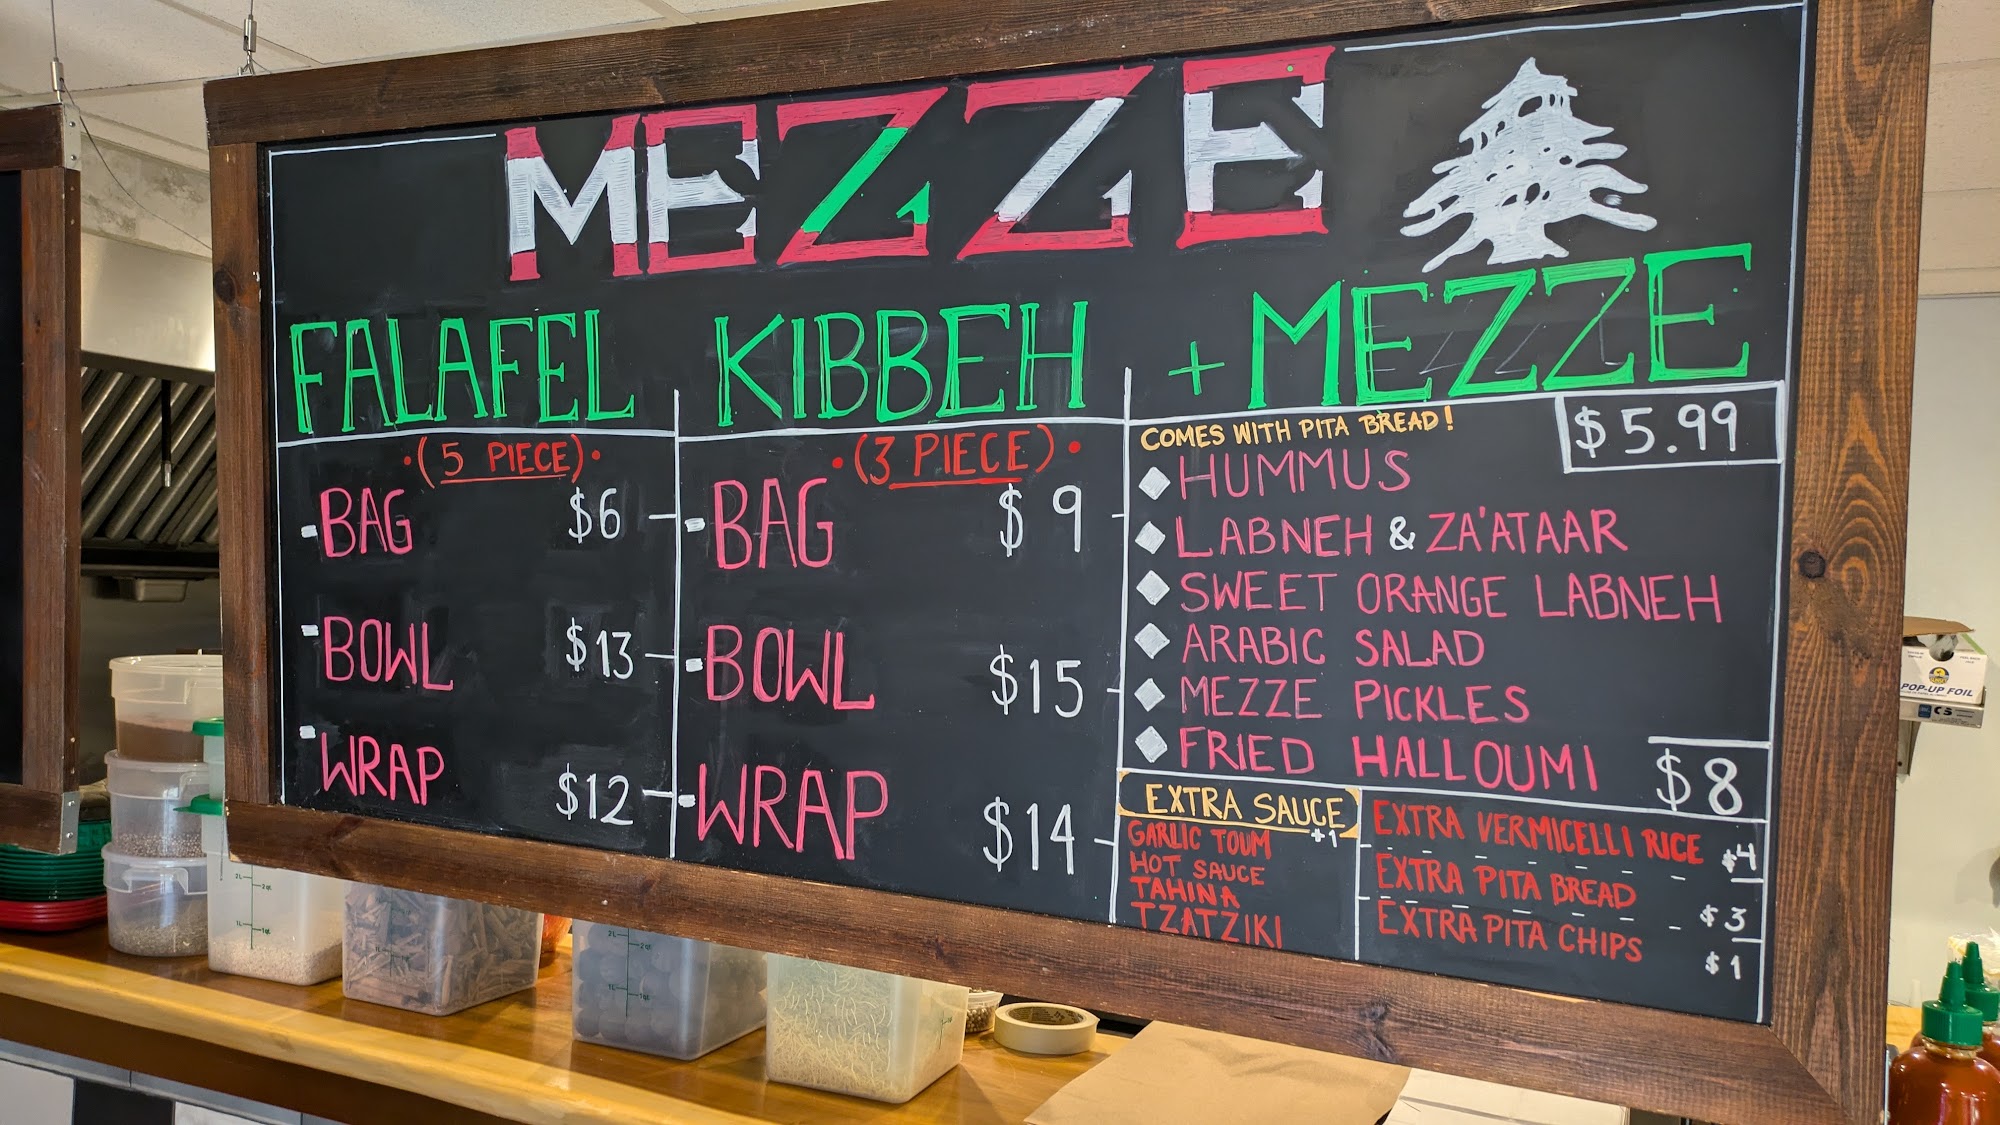 MEZZE
FALAFEL
(5 PIECE)
BAG $6
BOWL $13
WRAP $12
KIBBEH
(3 PIECE)
BAG $9
BOWL $15
WRAP $14
+ MEZZE
COMES WITH PITA BREAD! $5.99
HUMMUS
LABNEH & ZA'ATAAR
SWEET ORANGE LABNEH
ARABIC SALAD
MEZZE PICKLES
FRIED HALLOUMI $8
EXTRA SAUCE
+1
GARLIC TOUM
HOT SAUCE
TAHINA
TZATZIKI
EXTRA VERMICELLI RICE $4
EXTRA PITA BREAD $3
EXTRA PITA CHIPS $1
POP-UP FOIL